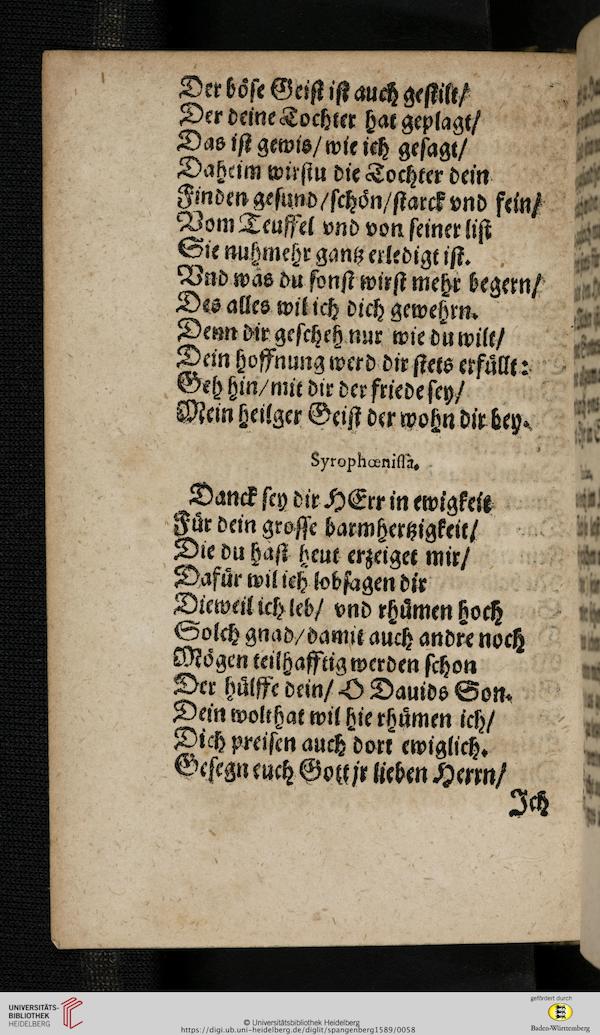 Der böse Geist ist auch gestilt/
Der deine Tochter hat geplagt/
Das ist gewis/ wie ich gesagt/
Daheim wirstu die Tochter dein
Finden gesund/ schön/ starck vnd fein/
Vom Teuffel vnd von seiner list
Sie nuhmehr gantz erledigt ist.
Vnd was du sonst wirst mehr begern/
Des alles wil ich dich gewehrn.
Denn dir gescheh nur wie du wilt/
Dein hoffnung werd dir stets erfüllt:
Geh hin/ mit dir der friede sey/
Mein heilger Geist der wohn dir bey.
Syrophœnissa.
Danck sey dir HErr in ewigkeit
Für dein grosse barmhertzigkeit/
Die du hast heut erzeiget mir/
Dafür wil ich lobsagen dir
Dieweil ich leb/ vnd rhümen hoch
Solch gnad/ damit auch andre noch
Mögen teilhafftig werden schon
Der hülffe dein/ O Dauids Son.
Dein wolthat wil hie rhümen ich/
Dich preisen auch dort ewiglich.
Gesegn euch Gott jr lieben Herrn/
Ich
UNIVERSITÄTS-
BIBLIOTHEK
HEIDELBERG
© Universitätsbibliothek Heidelberg
https://digi.ub.uni-heidelberg.de/diglit/spangenberg1589/0058
gefördert durch
Baden-Württemberg